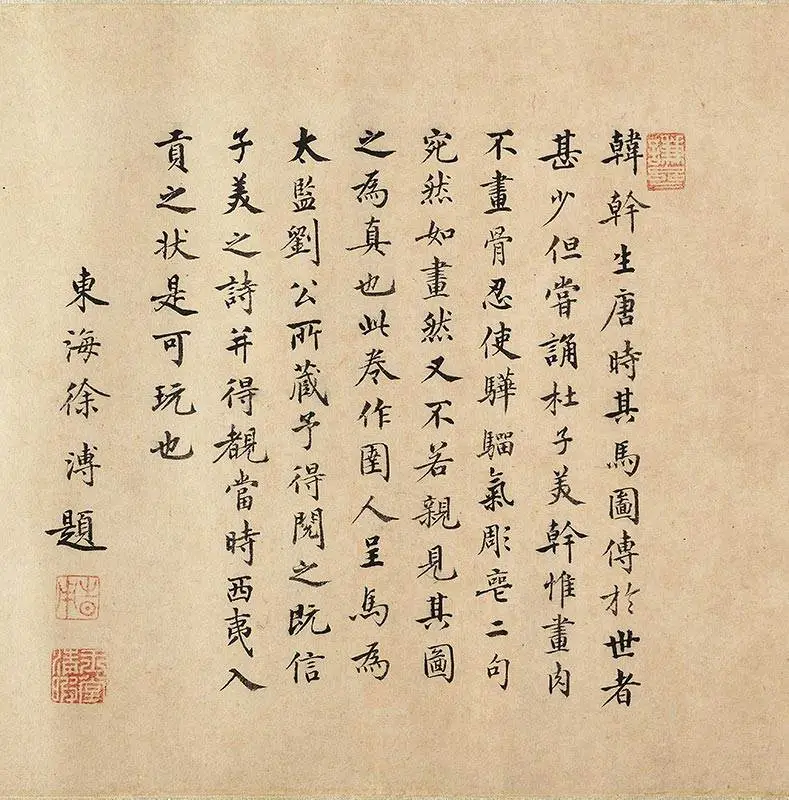 韓幹生唐時其馬圖傳於世者
甚少但嘗誦杜子美幹惟畫肉
不畫骨忍使驊騮氣彫喪二句
宛然如畫然又不若親見其圖
之為真也此卷作圉人呈馬為
太監劉公所藏予得閱之既信
子美之詩并得覩當時西夷入
貢之状是可玩也
東海徐溥題